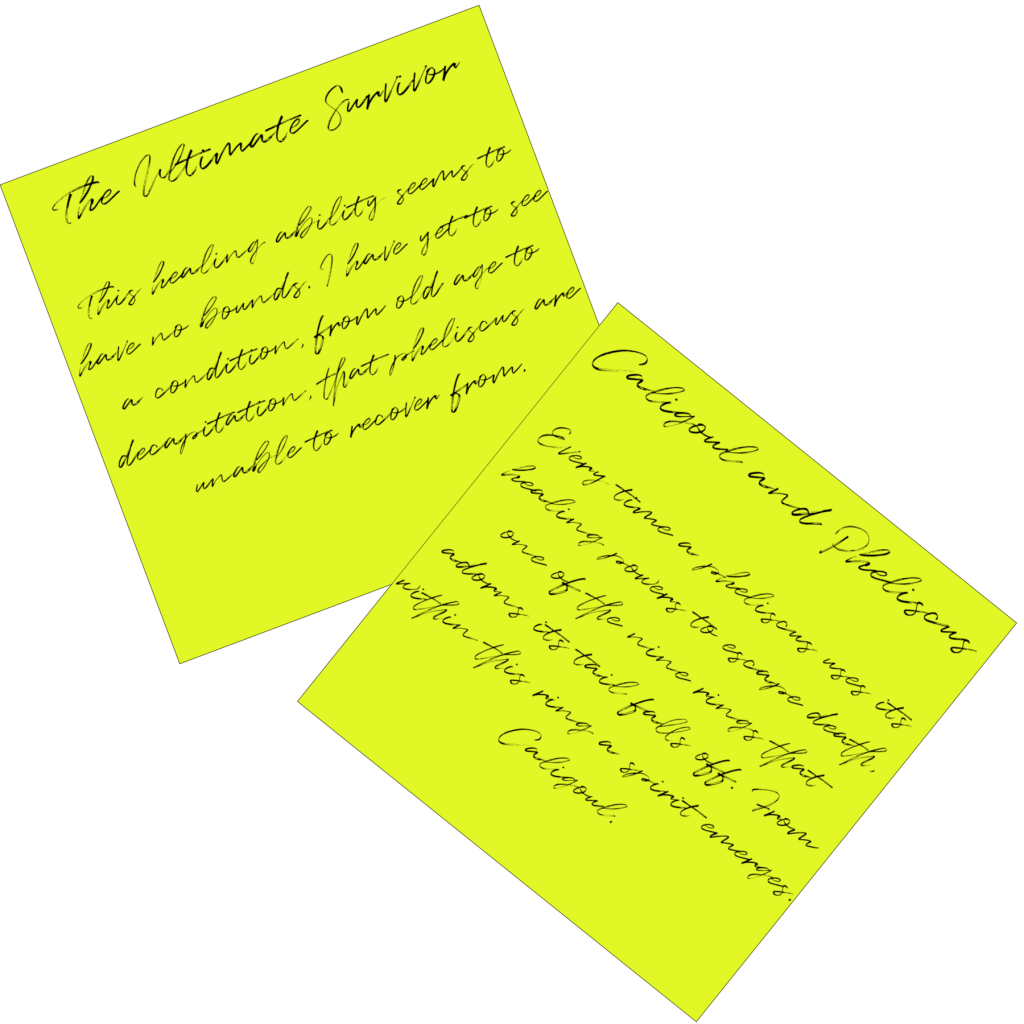 The Ultimate Survivor
This healing ability seems to
have no bounds. I have yet to see
a condition, from old age to
decapitation, that pheliscus are
unable to recover from.
Caligoul and Pheliscus
Every time a pheliscus uses its
healing powers to escape death,
one of the nine rings that
adorns its tail falls off. From
within this ring a spirit emerges.
Caligoul.